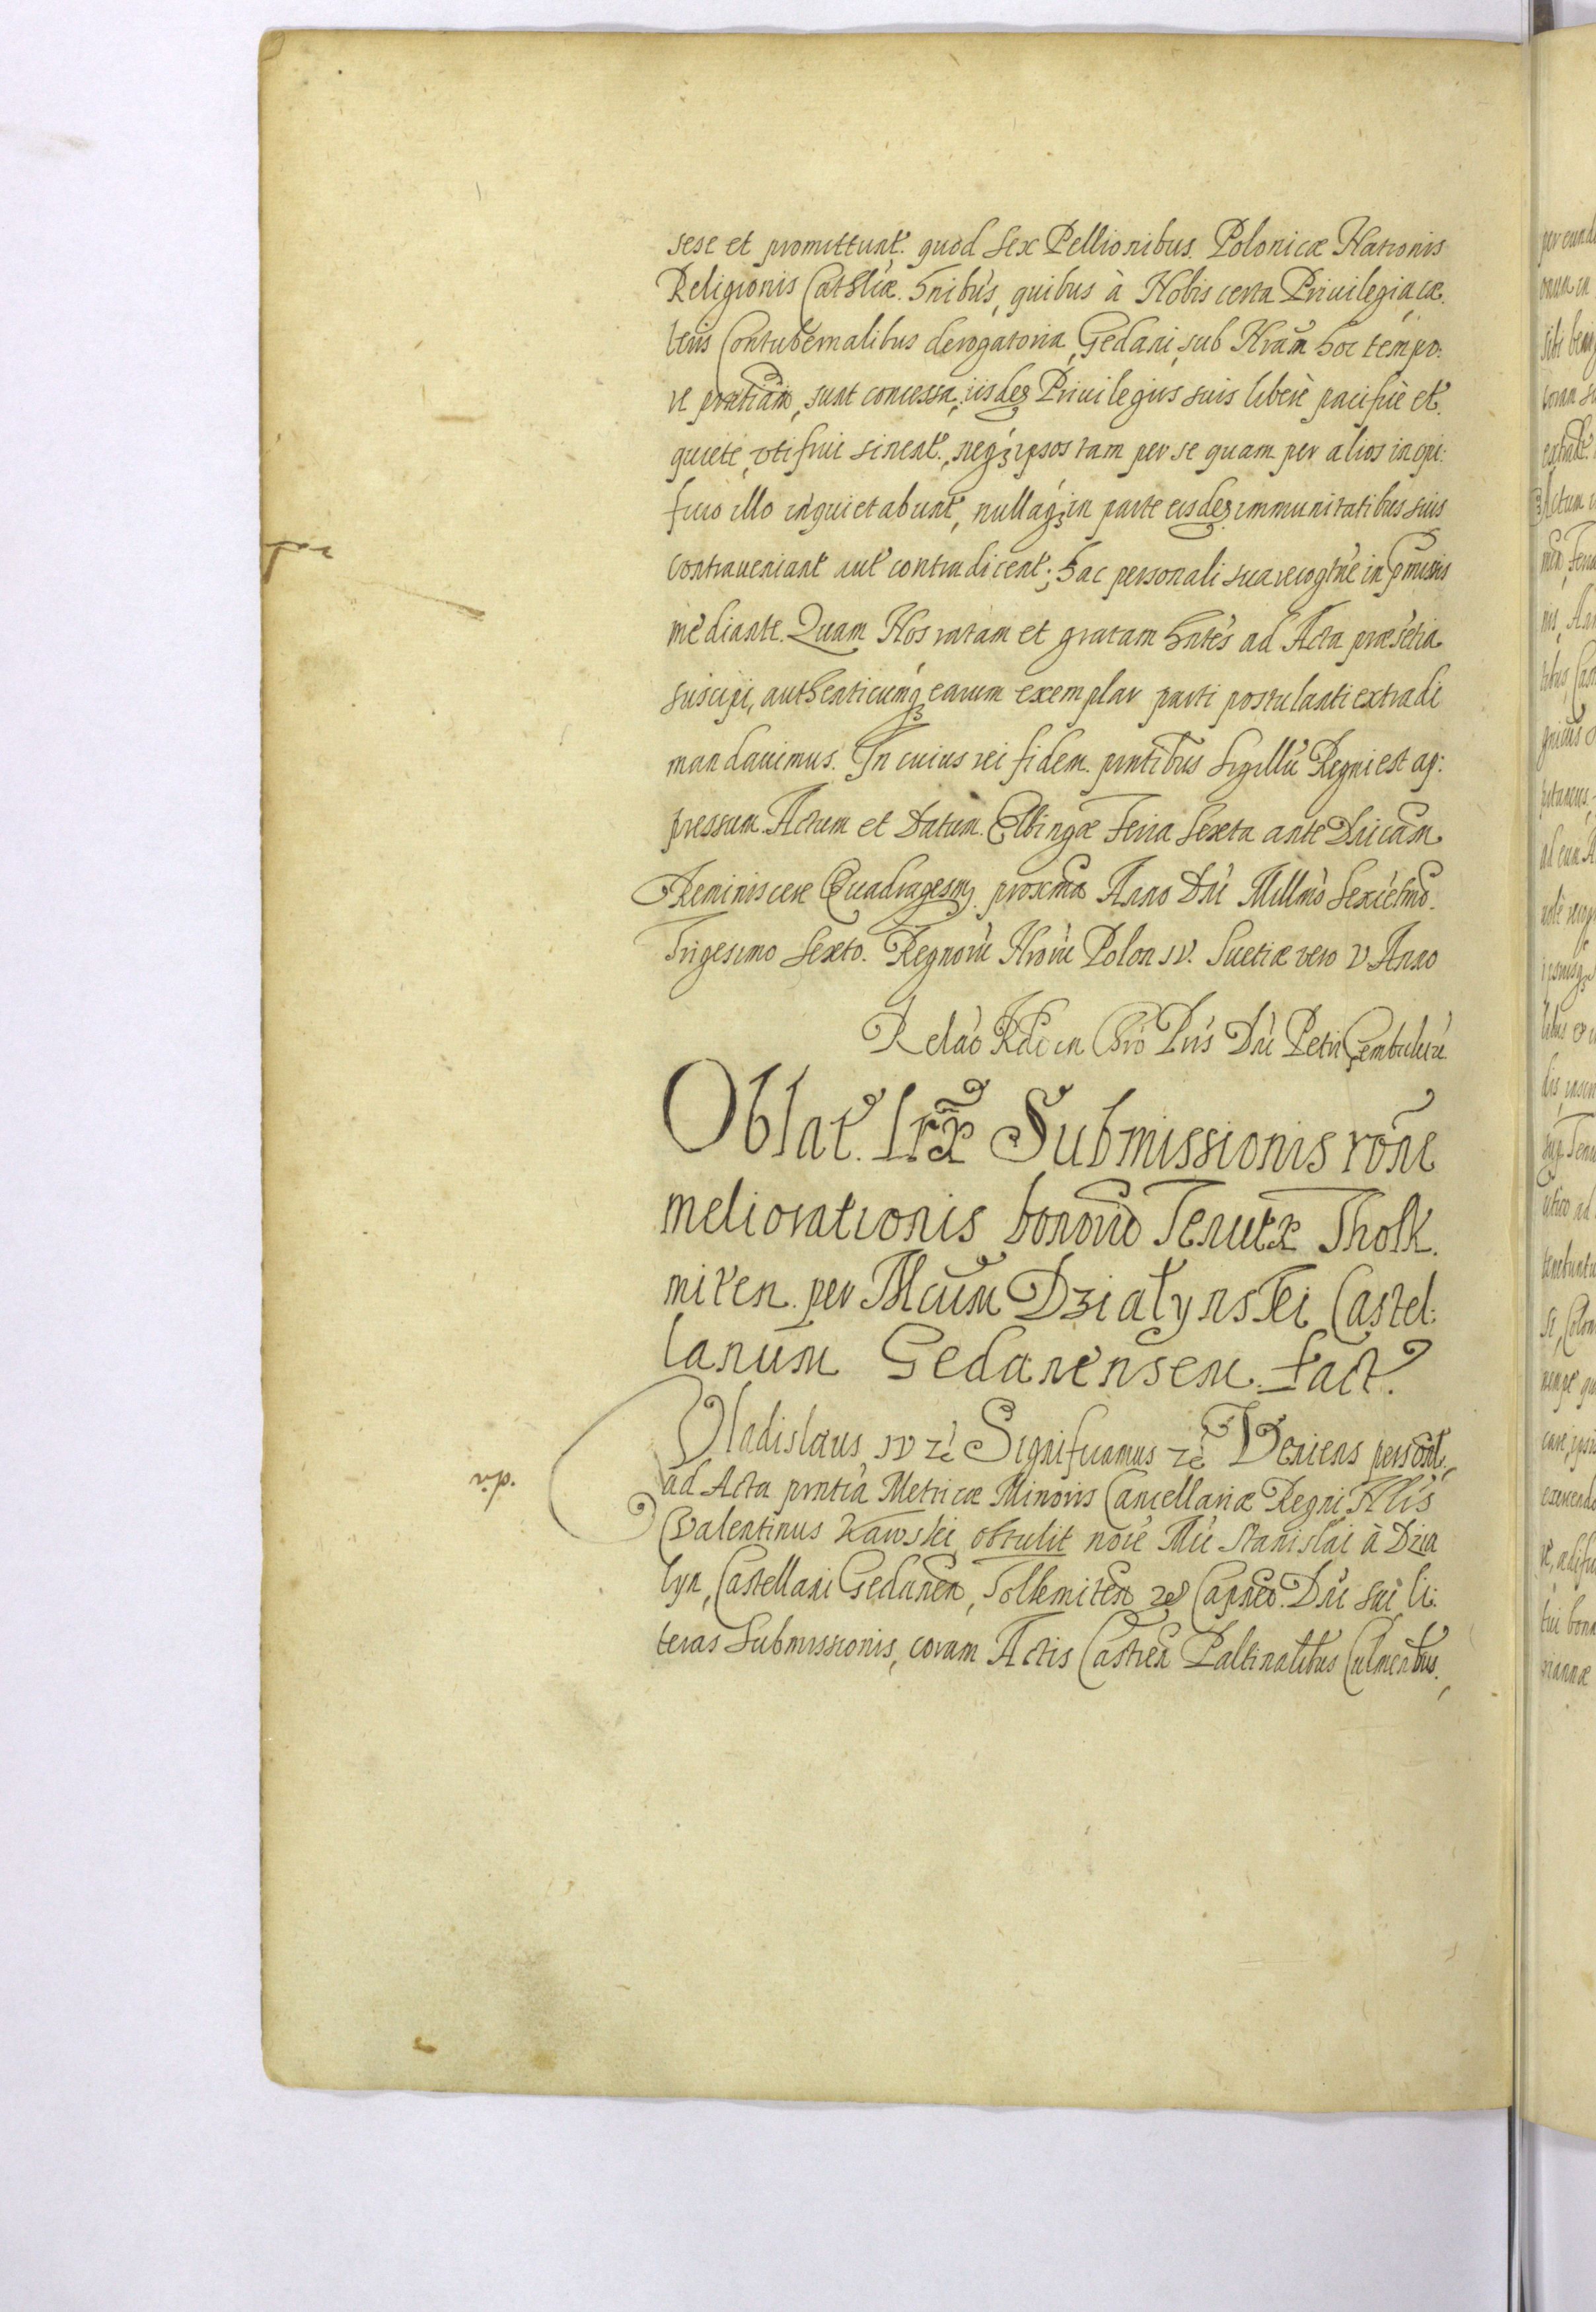 sese et promittunt. quod Sex Pellionibus. Polonicæ Nationis
Religionis Cathliæ. hntibus, quibus à Nobis certa Priuilegia cæ.
teris Contubernalibus derogatoria, Gedani, sub Nram hoc tempo:
re pntiam, sunt concessa, iisdeз Priuilegiis suis liberè pacificè et
quiete, vti frui sinent, neqз ipsos tam per se quam per alios in opi:
ficio illo inquietabunt, nullaqз in parte eisdeз immunitatibus suis
contraueniant aut contradicent; hac personali sua recogne in pmissis
mediante. Quam Nos ratam et gratam hntes ad Acta præsetia
suscipi, authenticumqз earum exemplar parti postulanti extradi
mandauimus. In cuius rei fidem. pntibus Sigillu Regni est ap:
pressum. Actum et Datum. Elbingæ Feria Sexta ante Dnicam
Reminiscere Quadragesm. proxma Anno Dni Millmo Sexcetmo.
Trigesimo Sexto. Regnoru Nroru Polon IV. Suetiæ vero V Anno
Relao Rdi in Chro Pris Dni Petri Gembicki
Oblat. Lræ Submissionis rone
meliorationis bonoru Tenutæ Tholk.
miten. per Mcum Dzialynski Castel:
lanum Gedanensem. fact.
Vladislaus IV zc Significamus zc Veniens personl.
ad Acta pntia Metricæ Minoris Cancellariæ Regni Nlis
Valentinus Kawski obtulit noie Mci Stanislai à Dzia
lyn, Castellani Gedanen, Tolkemiten zc Capnei. Dni sui li:
teras Submissionis, coram Actis Castren Paltinalibus Culmenbus.